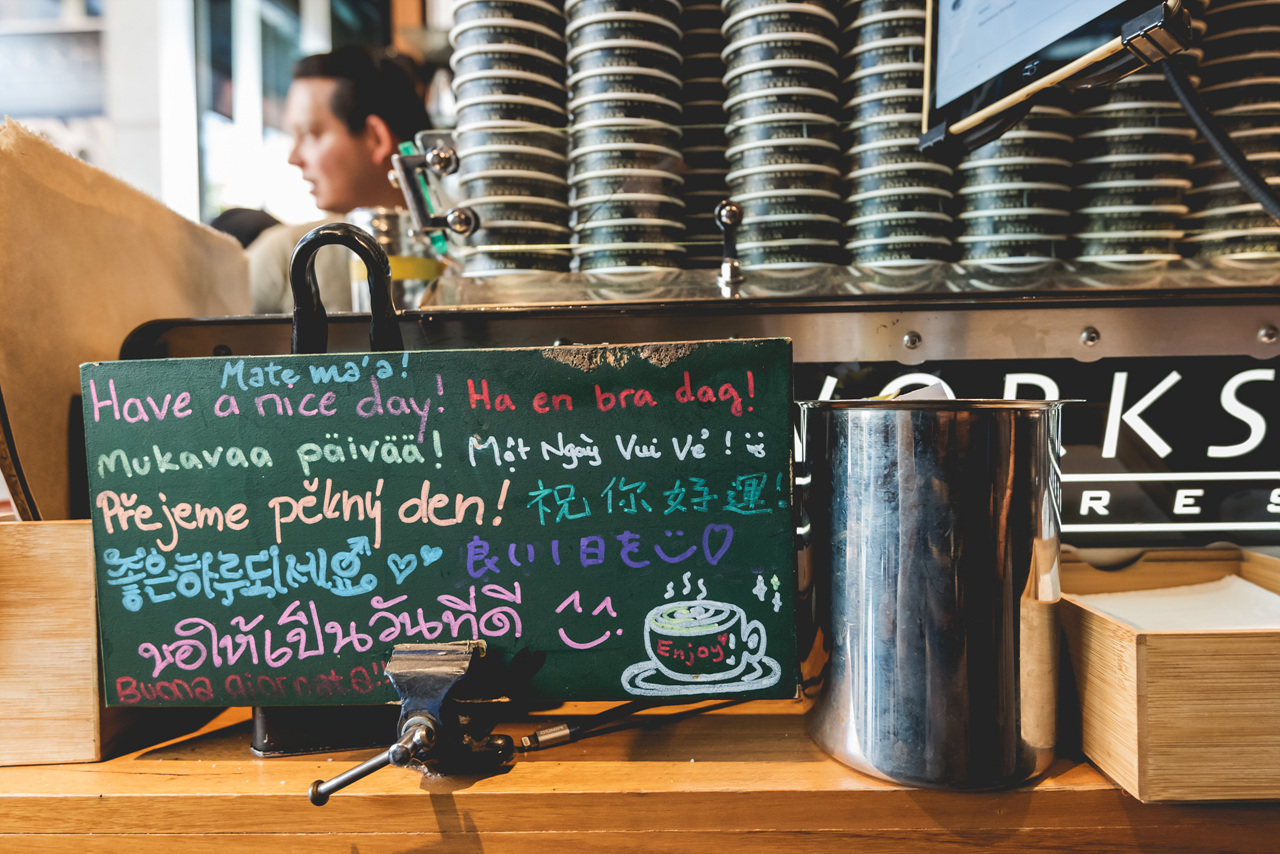 Mate ma'a!
Have a nice day! Ha en bra dag!
Mukavaa päivää! Một Ngày Vui Vẻ!
Přejeme pěkný den! 祝你好運!
좋은하루되세요 良い1日を
ขอให้เป็นวันที่ดี
Enjoy
Buona giornata!!
ORKS
RES